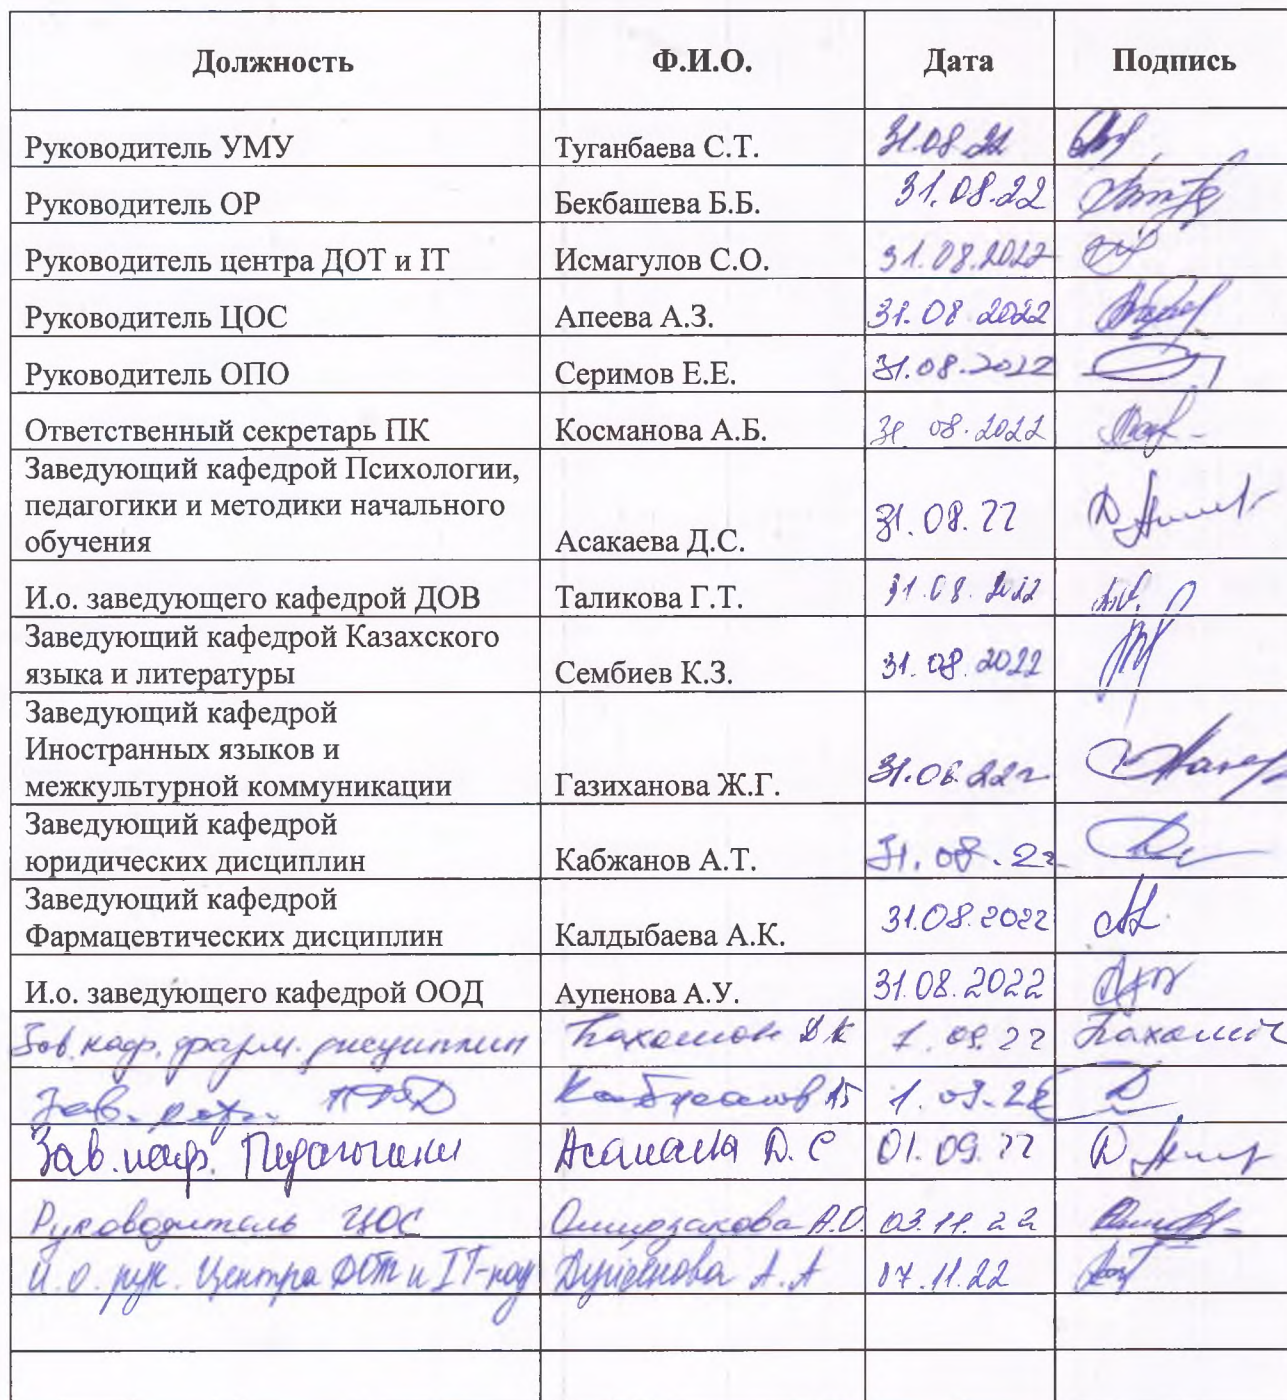 Должность Ф.И.О. Дата Подпись
Руководитель УМУ Туганбаева С.Т. 31.08.22
Руководитель ОР Бекбашева Б.Б. 31.08.22
Руководитель центра ДОТ и IT Исмагулов С.О. 31.08.2022
Руководитель ЦОС Апеева А.З. 31.08.2022
Руководитель ОПО Серимов Е.Е. 31.08.2022
Ответственный секретарь ПК Косманова А.Б. 31 08.2022
Заведующий кафедрой Психологии,
педагогики и методики начального
обучения Асакаева Д.С. 31.08.22
И.о. заведующего кафедрой ДОВ Таликова Г.Т. 31.08.2022
Заведующий кафедрой Казахского
языка и литературы Сембиев К.З. 31.08.2022
Заведующий кафедрой
Иностранных языков и
межкультурной коммуникации Газиханова Ж.Г. 31.08.22г
Заведующий кафедрой
юридических дисциплин Кабжанов А.Т. 31.08.22
Заведующий кафедрой
Фармацевтических дисциплин Калдыбаева А.К. 31.08.2022
И.о. заведующего кафедрой ООД Аупенова А.У. 31.08.2022
Зав. каф. фарм. дисциплин 1.09.22
Зав. 1.09.22
Зав. каф. Педагогики Асакаева Д.С 01.09.22
Руководитель ЦОС Омирзакова А.О. 03.11.22
И.о. рук. Центра ДОТ и IT-тех А.А 07.11.22